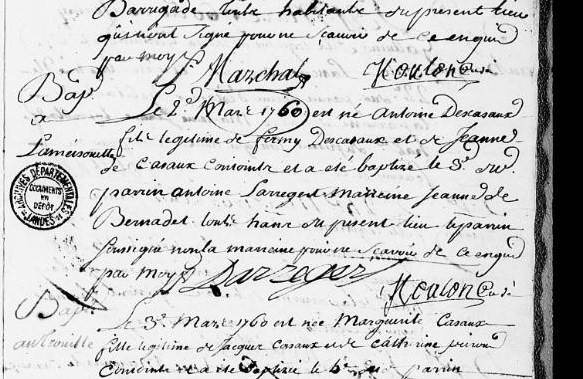 Barregade touts habitants du present lieu
qui n'ont signé pour ne scavoir de ce enquis
par moy
Marzchal Moulon Curé
Bap.
a
Le 2d. Mars 1760 est né Antoine Descasaux
fils legitime de fermy Descasaux et de Jeanne
de Casaux conjoints et a eté baptizé le 3e. du
parrin antoine Larreger marreine Jeanne de
Bernadet touts hans du present lieu le parrin
soussigné non la marreine pour ne scavoir de ce enquis
par moy
Darreger
Moulon Curé
ARCHIVES DÉPARTEMENTALES
DOCUMENTS
EN
DÉPÔT
LANDES
Bap.
Le 3e. Mars 1760 est née Marguerite Casaux
fille legitime de Jacques Casaux et de Catherine
Conjoints et a eté baptizée le parrin